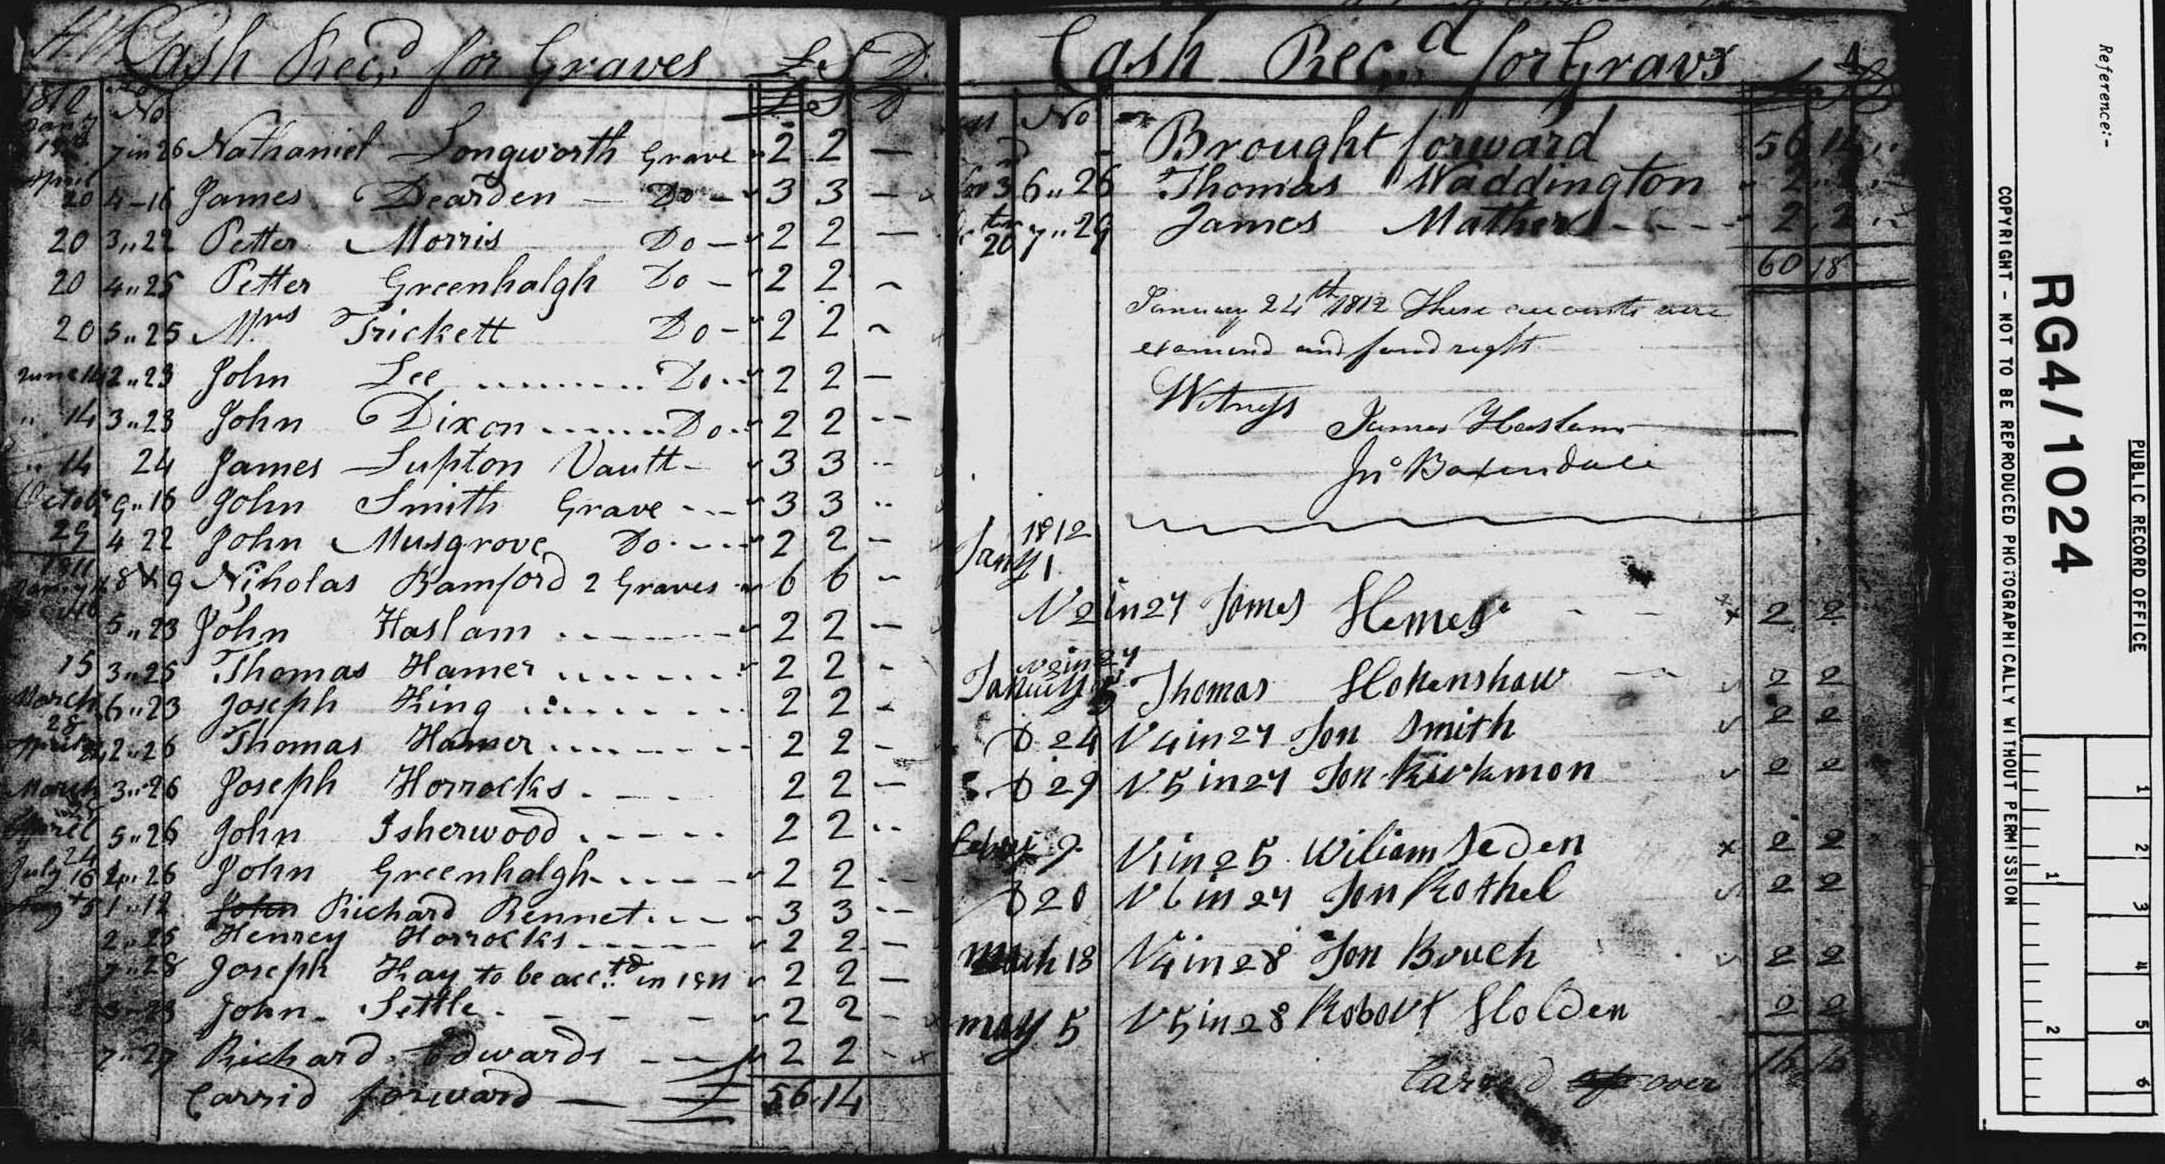 Cash Recd for Graves £ S D
1810 No £ S D
Jany 19 7 in 26 Nathaniel Longworth Grave 2 2 —
April 20 4-16 James Dearden — Do — 3 3 —
20 3,,22 Petter Morris Do — 2 2 —
20 4,,25 Petter Greenhalgh Do — 2 2 —
20 5,,25 Mrs Trickett Do — 2 2 —
June 14 2,,23 John Lee ........ Do.. 2 2 —
,, 14 3,,23 John Dixon ....... Do.. 2 2 --
,, 14 24 James Lupton Vautt - 3 3 --
Octobr 9,,16 John Smith Grave --- 3 3 --
29 4 22 John Musgrove Do.--- 2 2 —
1811
Jany 8 & 9 Niholas Bamford 2 Graves 6 6 --
5,,23 John Haslam ....... 2 2 —
15 3,,25 Thomas Hamer ....... 2 2 -
March 28 6,,23 Joseph King ....... 2 2 -
2,,26 Thomas Hamer ....... 2 2 —
March 3,,26 Joseph Horrocks .--- 2 2 —
Aprel 24 5,,26 John Isherwood .---- 2 2 --
July 16 4,,26 John Greenhalgh .---- 2 2 --
5 1,,12 John Richard Rennet .--- 3 3 --
2,,25 Henrey Horrocks ----- 2 2 —
7,,28 Joseph Kay to be acctd in 1811 2 2 —
3-23 John Settle - - - - 2 2 —
7,,27 Richard Edwards --- 2 2 -
Carrid forward — £ 56,14
Cash Recd for Gravs
No
Brought forward 56 14 ,,
3 6,,26 Thomas Waddington 2 2 —
26 7,,29 James Mather ----- 2 2
60 18
January 24th 1812 These accounts were
examend and found right
Witness James Haslam
Jno Baxendale
1812
Jany 1
N 2 in 27 James Hemes 2 2
N 3 in 27
January 5 Thomas Hokenshaw 2 2
D 24 N 4 in 27 Jon Smith 2 2
D 29 N 5 in 27 Jon Kirkmon 2 2
9 N 1 in 25 Wiliam Seden 2 2
D 20 N 6 in 27 Jon Rothel 2 2
March 18 N 4 in 28 Jon Bouch 2 2
may 5 N 5 in 28 Robort Holden 2 2
Carred up over 16 16
Reference:-
RG4/1024
PUBLIC RECORD OFFICE
COPYRIGHT - NOT TO BE REPRODUCED PHOTOGRAPHICALLY WITHOUT PERMISSION
1 2 3 4 5 6
1 2